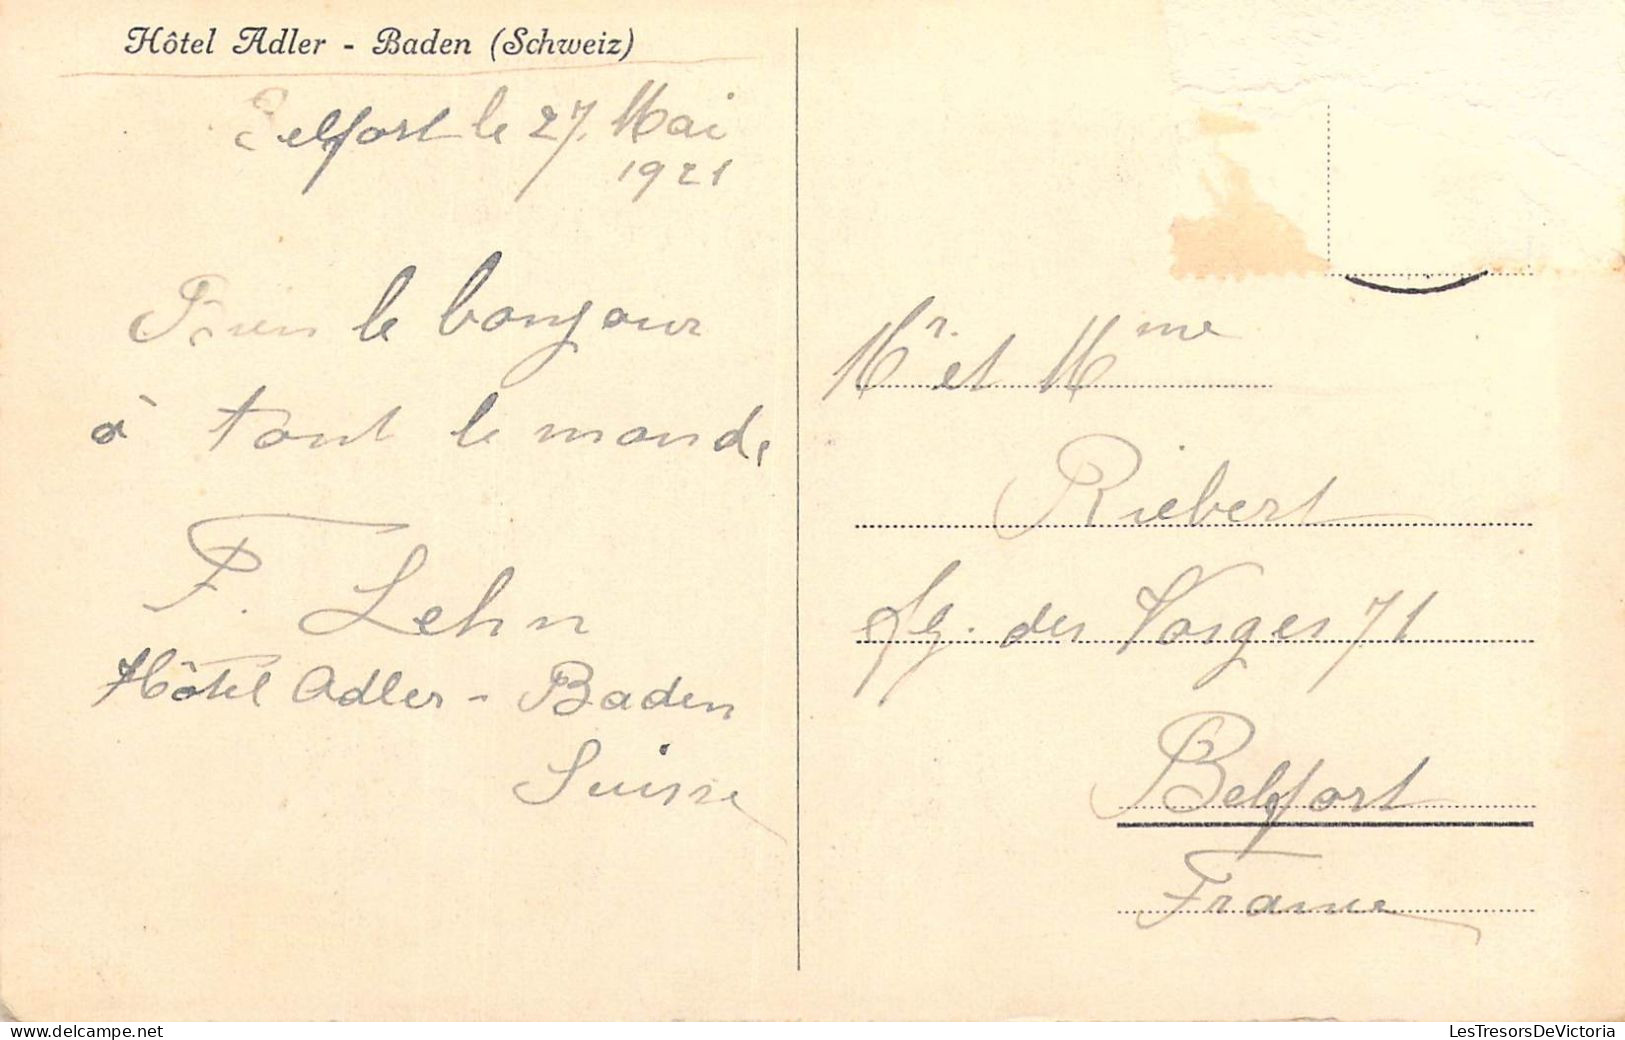 Hôtel Adler - Baden (Schweiz)
Belfort le 27. Mai
1921
Bien le bonjour
à tout le monde
F. Lehn
Hôtel Adler - Baden
Suisse
Mr. et Mme
Riebert
fg. des Vosges 71
Belfort
France
delcampe.net
LesTresorsDeVictoria